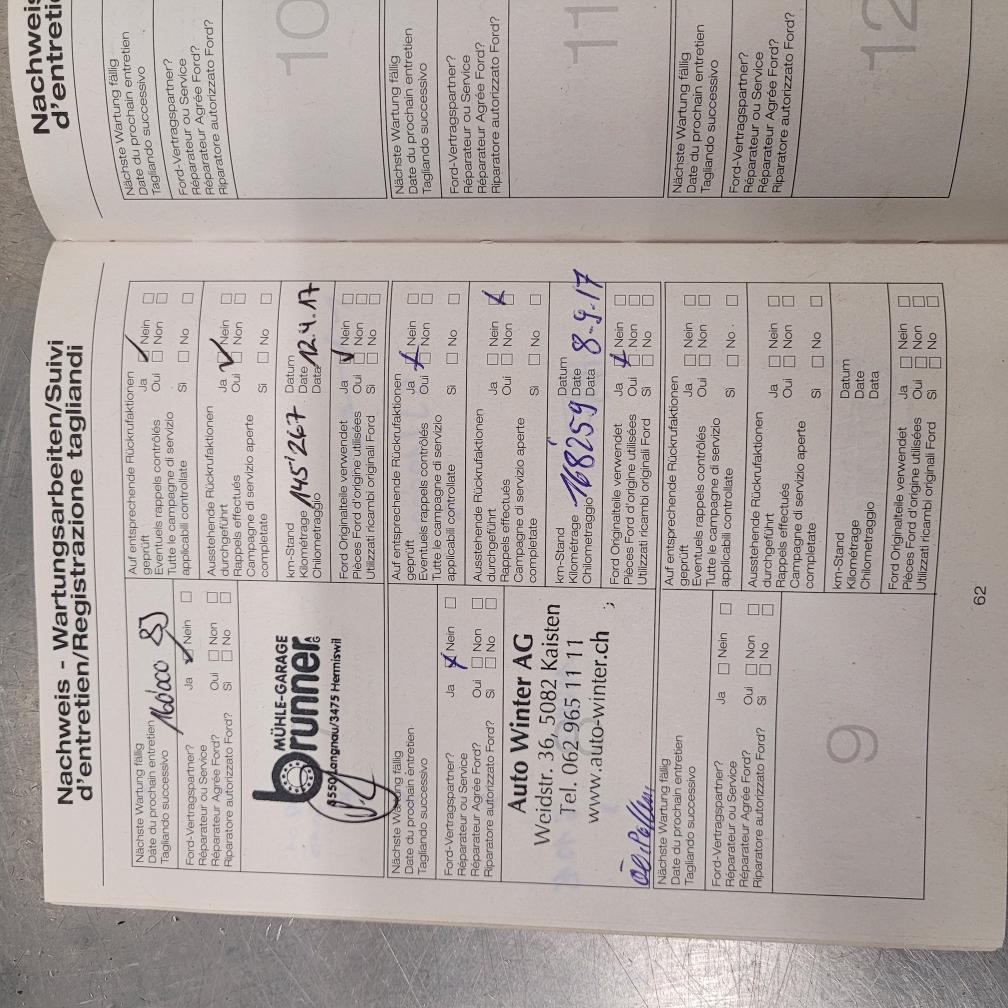 Nachweis - Wartungsarbeiten/Suivi
d'entretien/Registrazione tagliandi
Nächste Wartung fällig
Date du prochain entretien
Tagliando successivo
160'000
Ford-Vertragspartner? Ja ☑ Nein ☐
Réparateur ou Service
Réparateur Agrée Ford? Oui ☐ Non ☐
Riparatore autorizzato Ford? Si ☐ No ☐
MÜHLE-GARAGE
brunner AG
Hermiswil
Auf entsprechende Rückrufaktionen
geprüft Ja ☑ Nein ☐
Eventuels rappels contrôlés Oui Non ☐
Tutte le campagne di servizio
applicabili controllate Si ☐ No ☐
Ausstehende Rückrufaktionen
durchgeführt Ja ☑ Nein ☐
Rappels effectués Oui Non ☐
Campagne di servizio aperte
completate Si ☐ No ☐
km-Stand Datum
Kilométrage 145'267 Date 12.4.17
Chilometraggio Data
Ford Originalteile verwendet Ja ☑ Nein ☐
Pièces Ford d'origine utilisées Oui ☐ Non ☐
Utilizzati ricambi originali Ford Si ☐ No ☐
Nächste Wartung fällig
Date du prochain entretien
Tagliando successivo
Ford-Vertragspartner? Ja ☒ Nein ☐
Réparateur ou Service
Réparateur Agrée Ford? Oui ☐ Non ☐
Riparatore autorizzato Ford? Si ☐ No ☐
Auto Winter AG
Weidstr. 36, 5082 Kaisten
Tel. 062 965 11 11
www.auto-winter.ch
Auf entsprechende Rückrufaktionen
geprüft Ja ☒ Nein ☐
Eventuels rappels contrôlés Oui Non ☐
Tutte le campagne di servizio
applicabili controllate Si ☐ No ☐
Ausstehende Rückrufaktionen
durchgeführt Ja ☐ Nein ☒
Rappels effectués Oui ☐ Non ☐
Campagne di servizio aperte
completate Si ☐ No ☐
km-Stand Datum
Kilométrage 168259 Date 8-9-17
Chilometraggio Data
Ford Originalteile verwendet Ja ☒ Nein ☐
Pièces Ford d'origine utilisées Oui ☐ Non ☐
Utilizzati ricambi originali Ford Si ☐ No ☐
Nächste Wartung fällig
Date du prochain entretien
Tagliando successivo
Ford-Vertragspartner? Ja ☐ Nein ☐
Réparateur ou Service
Réparateur Agrée Ford? Oui ☐ Non ☐
Riparatore autorizzato Ford? Si ☐ No ☐
9
Auf entsprechende Rückrufaktionen
geprüft Ja ☐ Nein ☐
Eventuels rappels contrôlés Oui ☐ Non ☐
Tutte le campagne di servizio
applicabili controllate Si ☐ No ☐
Ausstehende Rückrufaktionen
durchgeführt Ja ☐ Nein ☐
Rappels effectués Oui ☐ Non ☐
Campagne di servizio aperte
completate Si ☐ No ☐
km-Stand Datum
Kilométrage Date
Chilometraggio Data
Ford Originalteile verwendet Ja ☐ Nein ☐
Pièces Ford d'origine utilisées Oui ☐ Non ☐
Utilizzati ricambi originali Ford Si ☐ No ☐
62
Nachweis
Nächste Wartung fällig
Date du prochain entretien
Tagliando successivo
Ford-Vertragspartner?
Réparateur ou Service
Réparateur Agrée Ford?
Riparatore autorizzato Ford?
10
Nächste Wartung fällig
Date du prochain entretien
Tagliando successivo
Ford-Vertragspartner?
Réparateur ou Service
Réparateur Agrée Ford?
Riparatore autorizzato Ford?
11
Nächste Wartung fällig
Date du prochain entretien
Tagliando successivo
Ford-Vertragspartner?
Réparateur ou Service
Réparateur Agrée Ford?
Riparatore autorizzato Ford?
12